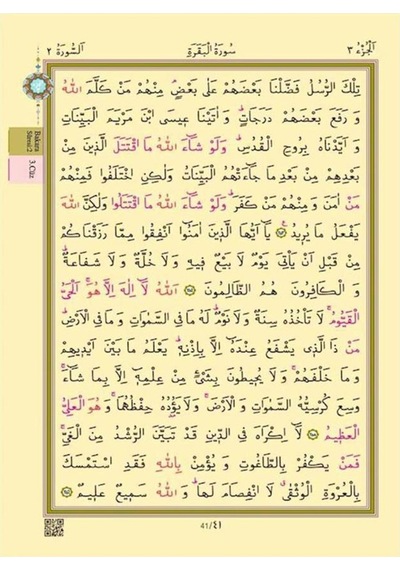 اَلْجُزْءُ ٣ سُورَةُ الْبَقَرَةِ اَلسُّورَةُ ٢
تِلْكَ الرُّسُلُ فَضَّلْنَا بَعْضَهُمْ عَلٰى بَعْضٍۢ مِنْهُمْ مَنْ كَلَّمَ اللّٰهُ
وَ رَفَعَ بَعْضَهُمْ دَرَجَاتٍۜ وَ اٰتَيْنَا ع۪يسَى ابْنَ مَرْيَمَ الْبَيِّنَاتِ
وَ اَيَّدْنَاهُ بِرُوحِ الْقُدُسِۜ وَلَوْ شَٓاءَ اللّٰهُ مَا اقْتَتَلَ الَّذ۪ينَ مِنْ
بَعْدِهِمْ مِنْ بَعْدِ مَا جَٓاءَتْهُمُ الْبَيِّنَاتُ وَلٰكِنِ اخْتَلَفُوا فَمِنْهُمْ
مَنْ اٰمَنَ وَ مِنْهُمْ مَنْ كَفَرَۜ وَلَوْ شَٓاءَ اللّٰهُ مَا اقْتَتَلُوا وَلٰكِنَّ اللّٰهَ
يَفْعَلُ مَا يُر۪يدُ ﴿٢٥٣﴾ يَٓا اَيُّهَا الَّذ۪ينَ اٰمَنُٓوا اَنْفِقُوا مِمَّا رَزَقْنَاكُمْ
مِنْ قَبْلِ اَنْ يَأْتِيَ يَوْمٌ لَا بَيْعٌ ف۪يهِ وَلَا خُلَّةٌ وَ لَا شَفَاعَةٌۜ
وَ الْكَافِرُونَ هُمُ الظَّالِمُونَ ﴿٢٥٤﴾ اَللّٰهُ لَٓا اِلٰهَ اِلَّا هُوَۚ اَلْحَيُّ
الْقَيُّومُۚ لَا تَأْخُذُهُ سِنَةٌ وَلَا نَوْمٌۜ لَهُ مَا فِي السَّمٰوَاتِ وَ مَا فِي الْاَرْضِۜ
مَنْ ذَا الَّذ۪ي يَشْفَعُ عِنْدَهُٓ اِلَّا بِاِذْنِه۪ۜ يَعْلَمُ مَا بَيْنَ اَيْد۪يهِمْ
وَ مَا خَلْفَهُمْۚ وَ لَا يُح۪يطُونَ بِشَيْءٍ مِنْ عِلْمِه۪ٓ اِلَّا بِمَا شَٓاءَۚ
وَسِعَ كُرْسِيُّهُ السَّمٰوَاتِ وَ الْاَرْضَۚ وَلَا يَؤُ۫دُهُ حِفْظُهُمَاۚ وَ هُوَ الْعَلِيُّ
الْعَظ۪يمُ ﴿٢٥٥﴾ لَٓا اِكْرَاهَ فِي الدّ۪ينِ قَدْ تَبَيَّنَ الرُّشْدُ مِنَ الْغَيِّۚ
فَمَنْ يَكْفُرْ بِالطَّاغُوتِ وَ يُؤْمِنْ بِاللّٰهِ فَقَدِ اسْتَمْسَكَ
بِالْعُرْوَةِ الْوُثْقٰىۗ لَا انْفِصَامَ لَهَاۜ وَ اللّٰهُ سَم۪يعٌ عَل۪يمٌ ﴿٢٥٦﴾
Bakara
Sûresi:2
3.Cüz
41/٤١